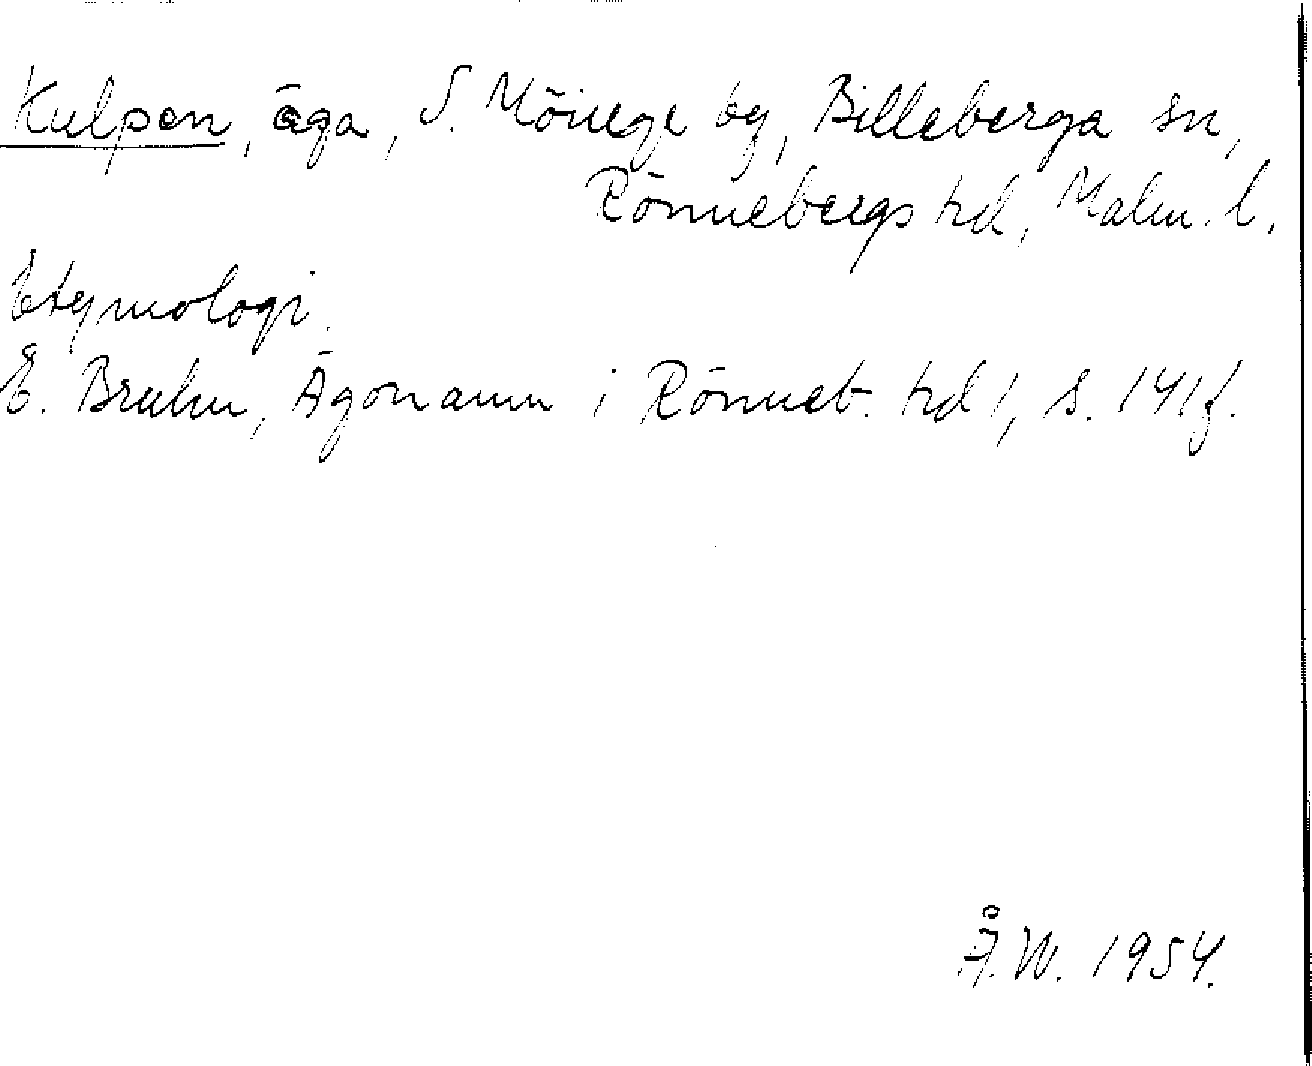 Kulpen, äga, S. Möinge by, Billeberga sn,
Rönnebergs hd, Malm. l.
Etymologi.
E. Bruhn, Ägonamn i Rönneb. hd 1, s. 141f.
Å.W. 1954.